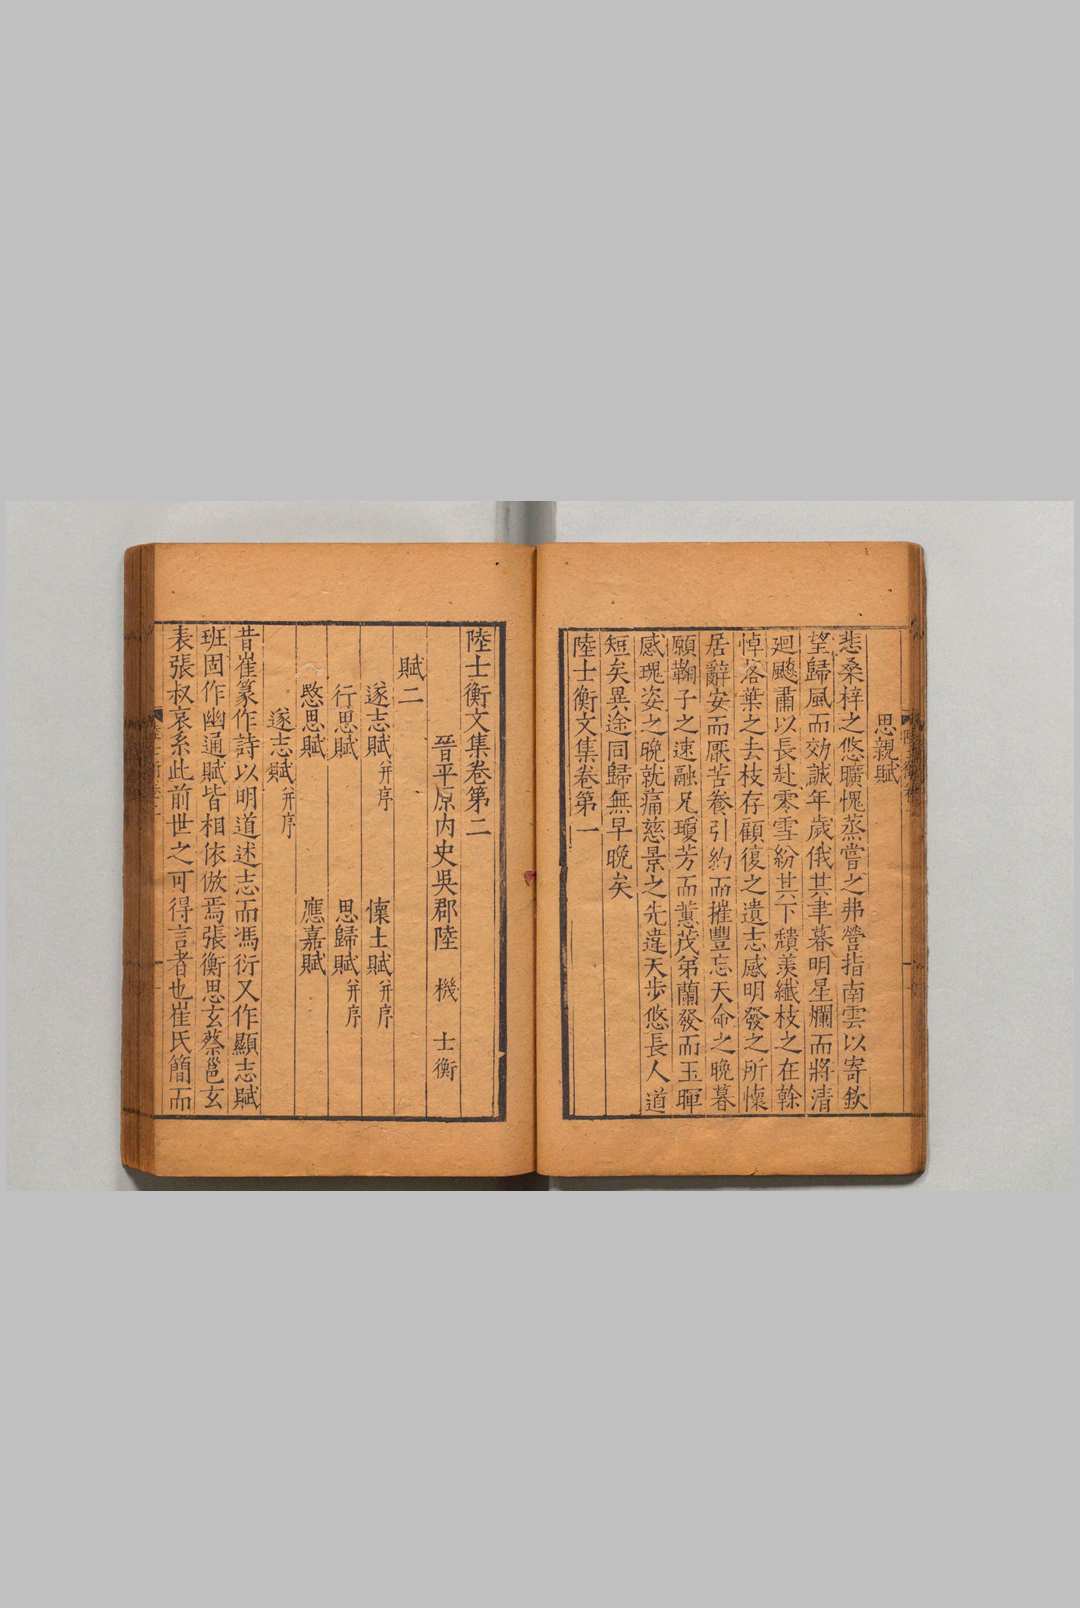 思親賦
悲桑梓之悠曠愧蒸嘗之弗營指南雲以寄欽
望歸風而効誠年歲俄其聿暮明星爛而將清
廻飈肅以長赴零雪紛其下頹羨纖枝之在榦
悼落葉之去枝存顧復之遺志感明發之所懷
居辭安而厭苦養引約而摧豐忘天命之晚暮
願鞠子之速融兄瓊芳而蕙茂弟蘭發而玉暉
感瑰姿之晚就痛慈景之先違天步悠長人道
短矣異途同歸無早晚矣
陸士衡文集卷第一
陸士衡文集卷第二
晉平原内史吳郡陸 機 士衡
賦二
遂志賦并序 懷土賦并序
行思賦 思歸賦并序
愍思賦 應嘉賦
遂志賦并序
昔崔篆作詩以明道述志而馮衍又作顯志賦
班固作幽通賦皆相依倣焉張衡思玄蔡邕玄
表張叔哀系此前世之可得言者也崔氏簡而